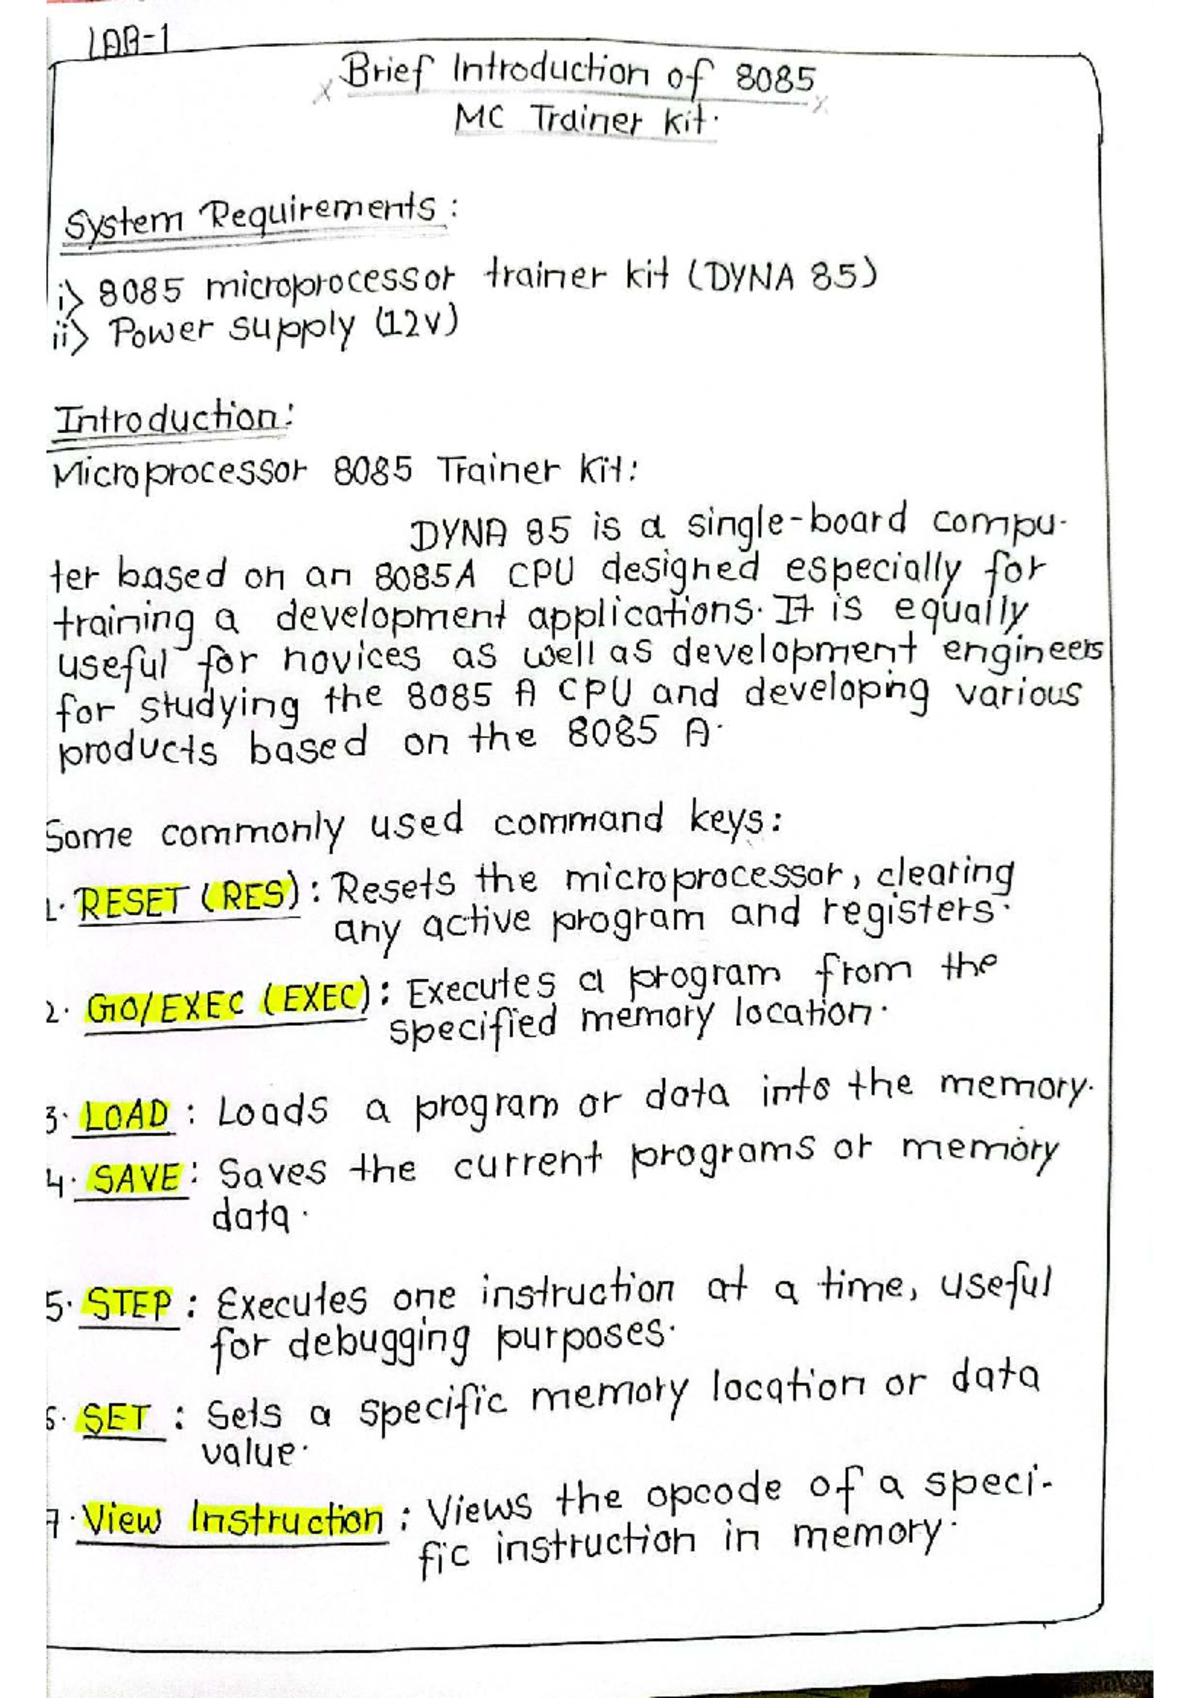 LAB-1
Brief Introduction of 8085
MC Trainer kit.
System Requirements:
i) 8085 microprocessor trainer kit (DYNA 85)
ii) Power supply (12v)
Introduction:
Microprocessor 8085 Trainer Kit:
DYNA 85 is a single-board compu-
ter based on an 8085A CPU designed especially for
training a development applications. It is equally
useful for novices as well as development engineers
for studying the 8085 A CPU and developing various
products based on the 8085 A.
Some commonly used command keys:
1. RESET (RES): Resets the microprocessor, clearing
any active program and registers.
2. GO/EXEC (EXEC): Executes a program from the
specified memory location.
3. LOAD: Loads a program or data into the memory.
4. SAVE: Saves the current programs or memory
data.
5. STEP: Executes one instruction at a time, useful
for debugging purposes.
6. SET: Sets a specific memory location or data
value.
7. View Instruction: Views the opcode of a speci-
fic instruction in memory.